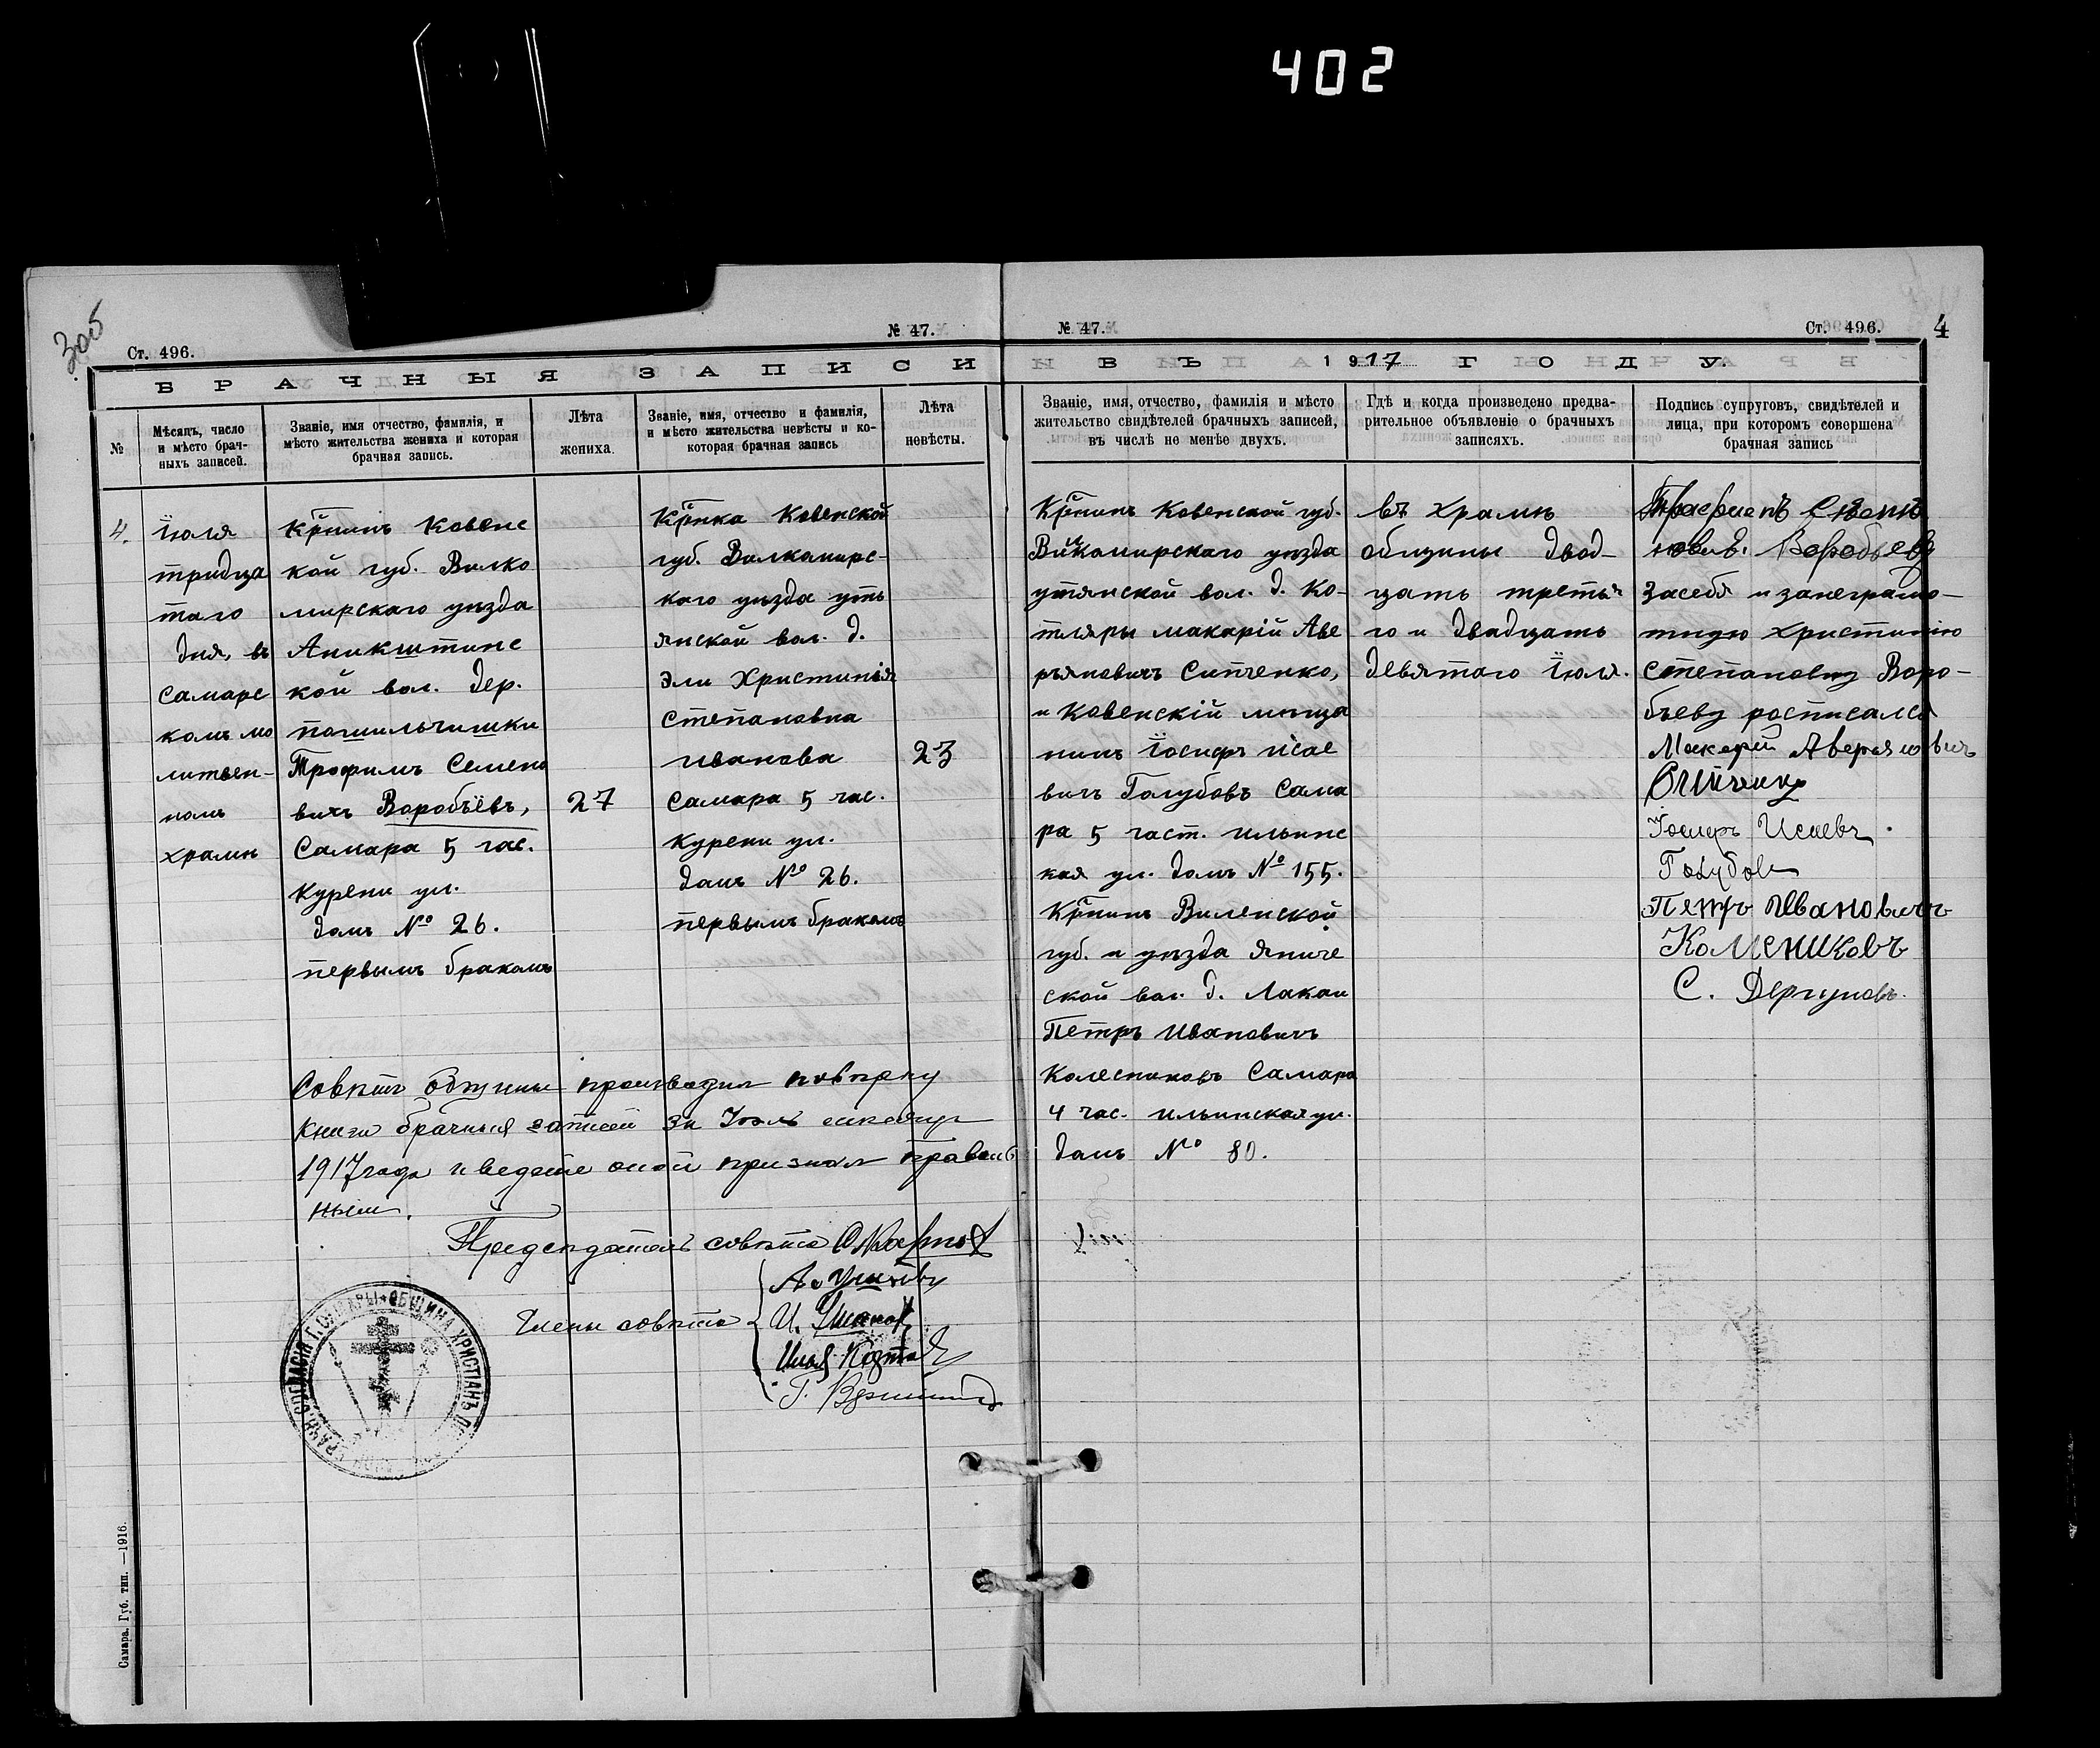 402
3об
Ст. 496.
№ 47.
№ 47.
Ст. 496.
4
БРАЧНЫЯ ЗАПИСИ
ВЪ 1917 ГОДУ.
№
Мѣсяцъ, число
и мѣсто брач-
ныхъ записей.
Званіе, имя отчество, фамилія, и
мѣсто жительства жениха и которая
брачная запись.
Лѣта
жениха.
Званіе, имя, отчество и фамилія,
и мѣсто жительства невѣсты и ко-
которая брачная запись
Лѣта
невѣсты.
Званіе, имя, отчество, фамилія и мѣсто
жительство свидѣтелей брачныхъ записей,
въ числѣ не менѣе двухъ.
Гдѣ и когда произведено предва-
рительное объявленіе о брачныхъ
записяхъ.
Подпись супруговъ, свидѣтелей и
лица, при которомъ совершена
брачная запись
4.
Іюля
тридца
таго
дня, въ
Самарс
комъ мо
литвен-
номъ
храмѣ
Крнинъ Ковенс
кой губ. Вилко
мирскаго уѣзда
Аникштинс
кой вол. дер.
пашильчишки
Трофимъ Семено
вичъ Воробъёвъ,
Самара 5 час.
Курени ул.
домъ № 26.
первымъ бракомъ
27
Крнка Ковенской
губ. Вилкамирс-
каго уѣзда утъ
янской вол. д.
Эли Христинія
Степановна
Иванова
Самара 5 час.
Курени ул.
домъ № 26.
первымъ бракомъ
23
Крнинъ Ковенской губ.
Викамирскаго уѣзда
утянской вол. д. Ко-
тляры Макарій Аве
ръяновичъ Сипченко,
и Ковенскій мѣща
нинъ Іосифъ Исае
вичъ Голубовъ Сама
ра 5 част. Ильинс
кая ул. домъ № 155.
Крнинъ Виленской
губ. и уѣзда Яниче
ской вол. д. Лакаи
Петръ Ивановичъ
Колесниковъ Самара
4 час. Ильинская ул.
домъ № 80.
въ храмѣ
общины двад-
цать третья
го и двадцать
девятаго Іюля.
Трафиемъ Семѣ
новичъ. Воробьевъ
за себя и за неграмо-
тную Христинію
Степановну Воро-
бъеву росписался
Макарій Аверяновичъ
Сипченко
Іосифъ Исаевъ
Голубовъ
Петръ Ивановичъ
Колесниковъ
С. Дергуновъ.
Совѣтъ общины произвозил повѣрку
книги брачныя записей за Іюль месяцъ
1917 года и ведете оной признал правиль
ным.
Председатель совѣта
Члены совѣта
И. Ушаковъ
ОБЩИНА ХРИСТІАНЪ
БРАЧН. СОГЛАСІЯ Г. САМАРЫ
Самара. Губ. тип. —1916.